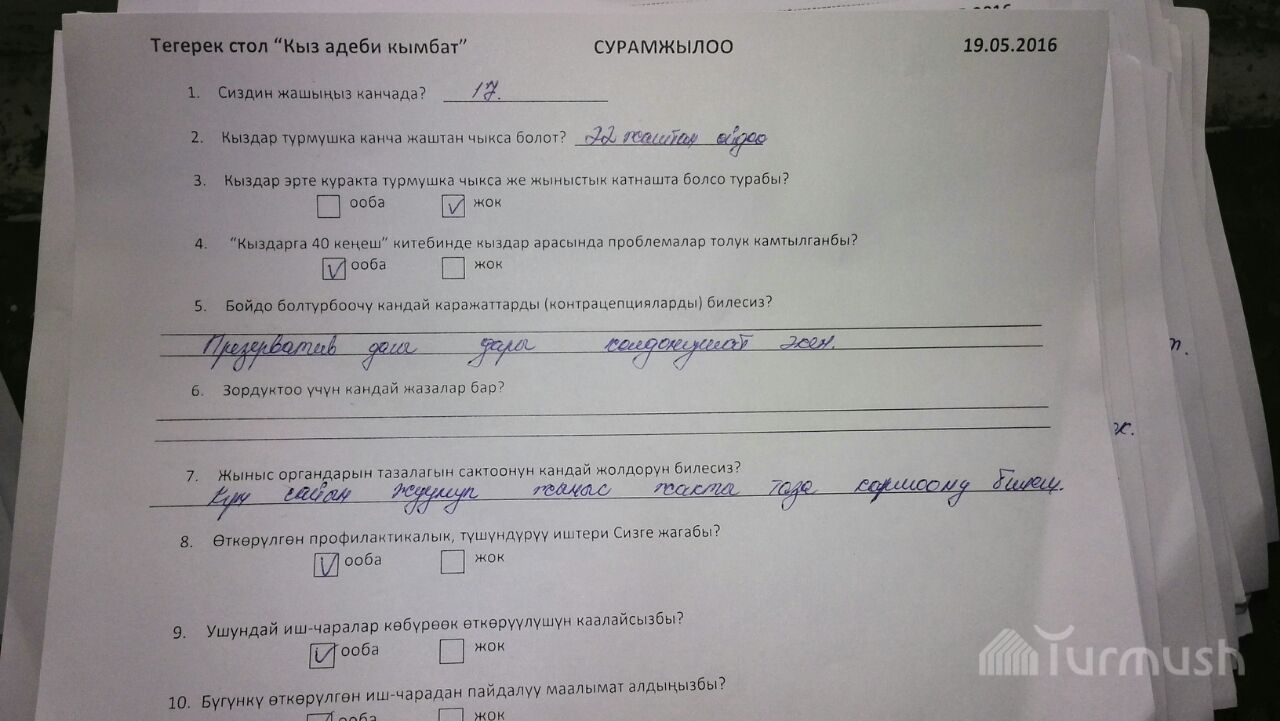 Тегерек стол “Кыз адеби кымбат” СУРАМЖЫЛОО 19.05.2016
1. Сиздин жашыңыз канчада? 17.
2. Кыздар турмушка канча жаштан чыкса болот? 22 жаштан өйдөө
3. Кыздар эрте куракта турмушка чыкса же жыныстык катнашта болсо турабы?
ооба √ жок
4. “Кыздарга 40 кеңеш” китебинде кыздар арасында проблемалар толук камтылганбы?
√ ооба жок
5. Бойдо болтурбоочу кандай каражаттарды (контрацепцияларды) билесиз?
Презерватив дары колдонушат экен.
6. Зордуктоо үчүн кандай жазалар бар?
7. Жыныс органдарын тазалагын сактоонун кандай жолдорун билесиз?
Күн сайын жуунуп жыныс жакта таза кармоону билем.
8. Өткөрүлгөн профилактикалык, түшүндүрүү иштери Сизге жагабы?
√ ооба жок
9. Ушундай иш-чаралар көбүрөөк өткөрүүлүшүн каалайсызбы?
√ ооба жок
10. Бүгүнкү өткөрүлгөн иш-чарадан пайдалуу маалымат алдыңызбы?
ооба жок
Turmush